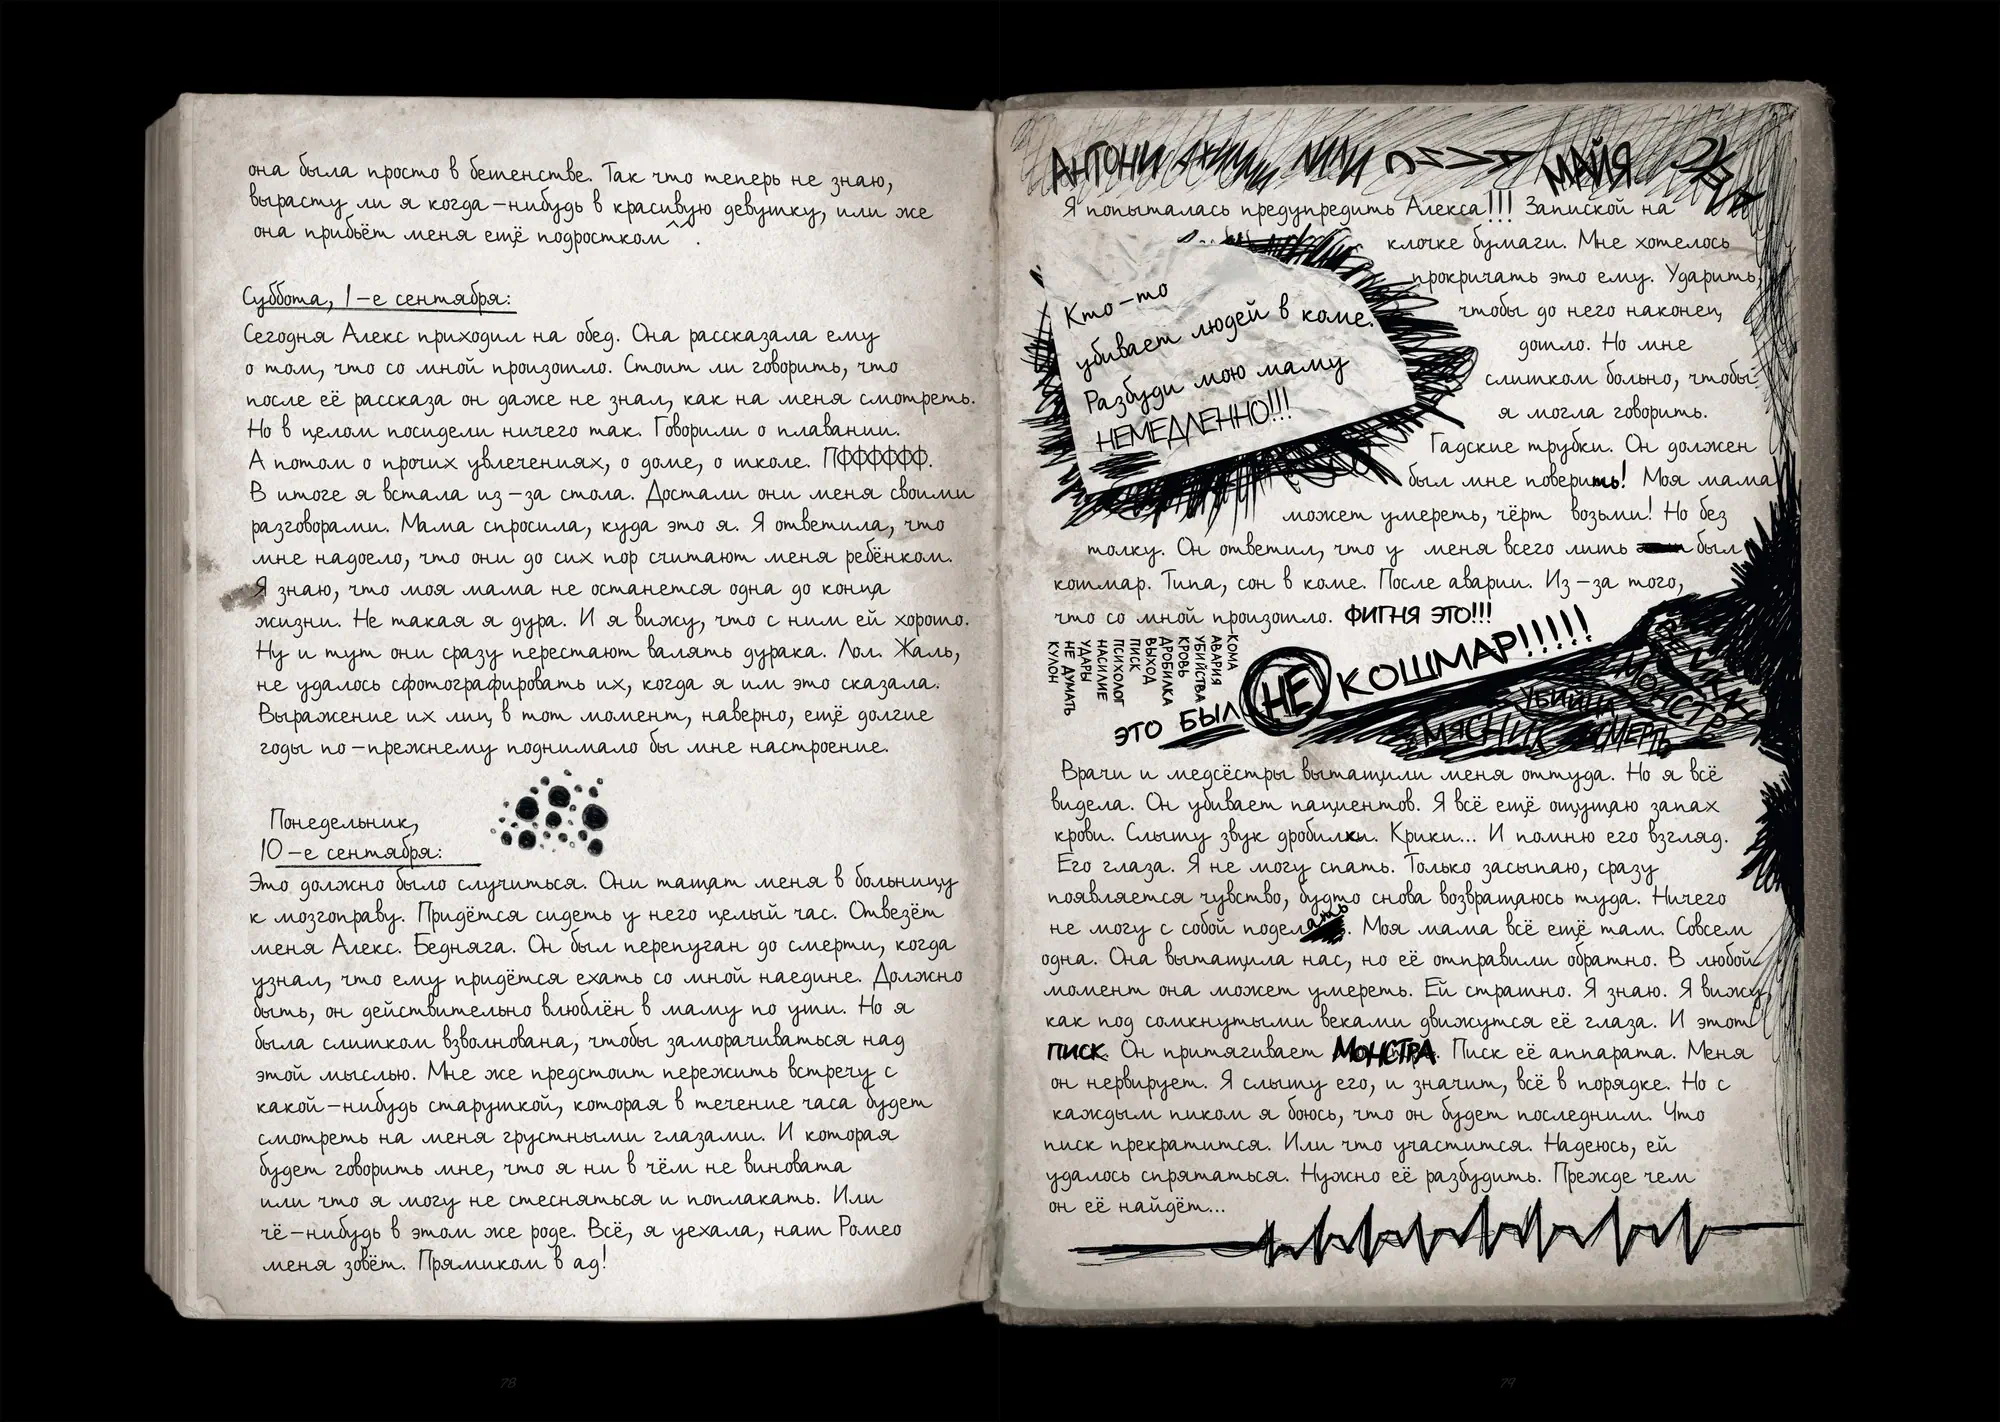 она была просто в бешенстве. Так что теперь не знаю,
вырасту ли я когда-нибудь в красивую девушку, или же
она прибьёт меня ещё подростком^^.
Суббота, 1-е сентября:
Сегодня Алекс приходил на обед. Она рассказала ему
о том, что со мной произошло. Стоит ли говорить, что
после её рассказа он даже не знал, как на меня смотреть.
Но в целом посидели ничего так. Говорили о плавании.
А потом о прочих увлечениях, о доме, о школе. ПФФФФФФ.
В итоге я встала из-за стола. Достали они меня своими
разговорами. Мама спросила, куда это я. Я ответила, что
мне надоело, что они до сих пор считают меня ребёнком.
Я знаю, что моя мама не останется одна до конца
жизни. Не такая я дура. И я вижу, что с ним ей хорошо.
Ну и тут они сразу перестают валять дурака. Лол. Жаль,
не удалось сфотографировать их, когда я им это сказала.
Выражение их лиц в тот момент, наверно, ещё долгие
годы по-прежнему поднимало бы мне настроение.
Понедельник,
10-е сентября:
Это должно было случиться. Они тащат меня в больницу
к мозгоправу. Придётся сидеть у него целый час. Отвезёт
меня Алекс. Бедняга. Он был перепуган до смерти, когда
узнал, что ему придётся ехать со мной наедине. Должно
быть, он действительно влюблён в маму по уши. Но я
была слишком взволнована, чтобы заморачиваться над
этой мыслью. Мне же предстоит пережить встречу с
какой-нибудь старушкой, которая в течение часа будет
смотреть на меня грустными глазами. И которая
будет говорить мне, что я ни в чём не виновата
или что я могу не стесняться и поплакать. Или
чё-нибудь в этом же роде. Всё, я уехала, наш Ромео
меня зовёт. Прямиком в ад!
78
АНТОНИ МАЙЯ
Я попыталась предупредить Алекса!!! Запиской на
клочке бумаги. Мне хотелось
прокричать это ему. Ударить,
чтобы до него наконец
дошло. Но мне
слишком больно, чтобы
я могла говорить.
Гадские трубки. Он должен
был мне поверить! Моя мама
может умереть, чёрт возьми! Но без
толку. Он ответил, что у меня всего лишь был
кошмар. Типа, сон в коме. После аварии. Из-за того,
что со мной произошло. ФИГНЯ ЭТО!!!
Кто-то
убивает людей в коме.
Разбуди мою маму
НЕМЕДЛЕННО!!!
КОМА
АВАРИЯ
УБИЙСТВА
КРОВЬ
ДРОБИЛКА
ВЫХОД
ПИСК
ПСИХОЛОГ
НАСИЛИЕ
УДАРЫ
НЕ ДУМАТЬ
КУЛОН
ЭТО БЫЛ НЕ КОШМАР!!!!!
УБИЙЦА
МОНСТР
МЯСНИК
СМЕРТЬ
Врачи и медсёстры вытащили меня оттуда. Но я всё
видела. Он убивает пациентов. Я всё ещё ощущаю запах
крови. Слышу звук дробилки. Крики... И помню его взгляд.
Его глаза. Я не могу спать. Только засыпаю, сразу
появляется чувство, будто снова возвращаюсь туда. Ничего
не могу с собой поделать. Моя мама всё ещё там. Совсем
одна. Она вытащила нас, но её отправили обратно. В любой
момент она может умереть. Ей страшно. Я знаю. Я вижу,
как под сомкнутыми веками движутся её глаза. И этот
ПИСК. Он притягивает МОНСТРА. Писк её аппарата. Меня
он нервирует. Я слышу его, и значит, всё в порядке. Но с
каждым пиком я боюсь, что он будет последним. Что
писк прекратится. Или что участится. Надеюсь, ей
удалось спрятаться. Нужно её разбудить. Прежде чем
он её найдёт...
79